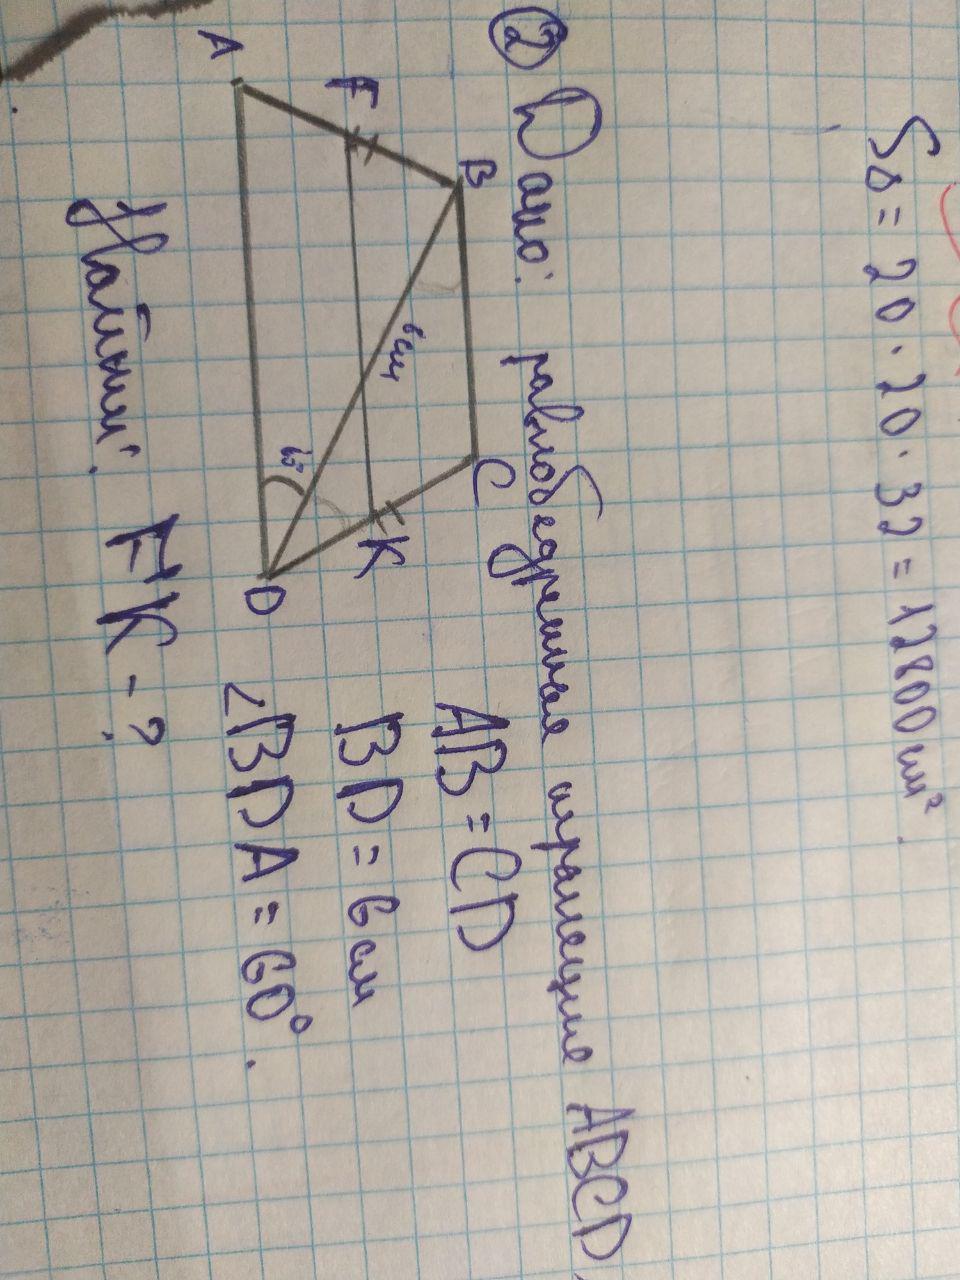 S∆ = 20 · 20 · 32 = 12800 см².
② Дано: равнобедренная трапеция ABCD,
AB = CD
BD = 6 см
∠BDA = 60°.
Найти: FK - ?
B
C
F
6 см
K
A
D